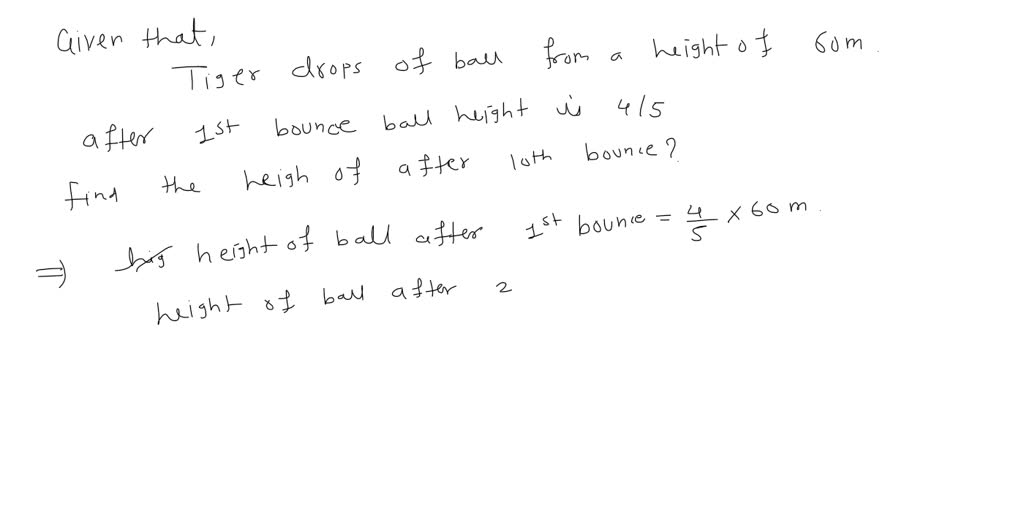 Given that,
Tiger drops of ball from a height of 60m.
after 1st bounce ball height is 4/5
find the heigh of after 10th bounce?
⇒ height of ball after 1st bounce = 4/5 × 60 m.
height of ball after 2